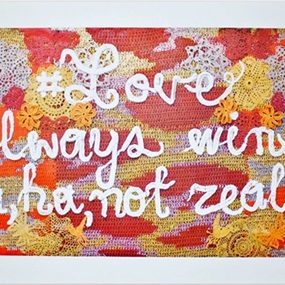 #Love
lways win
,ha,not real